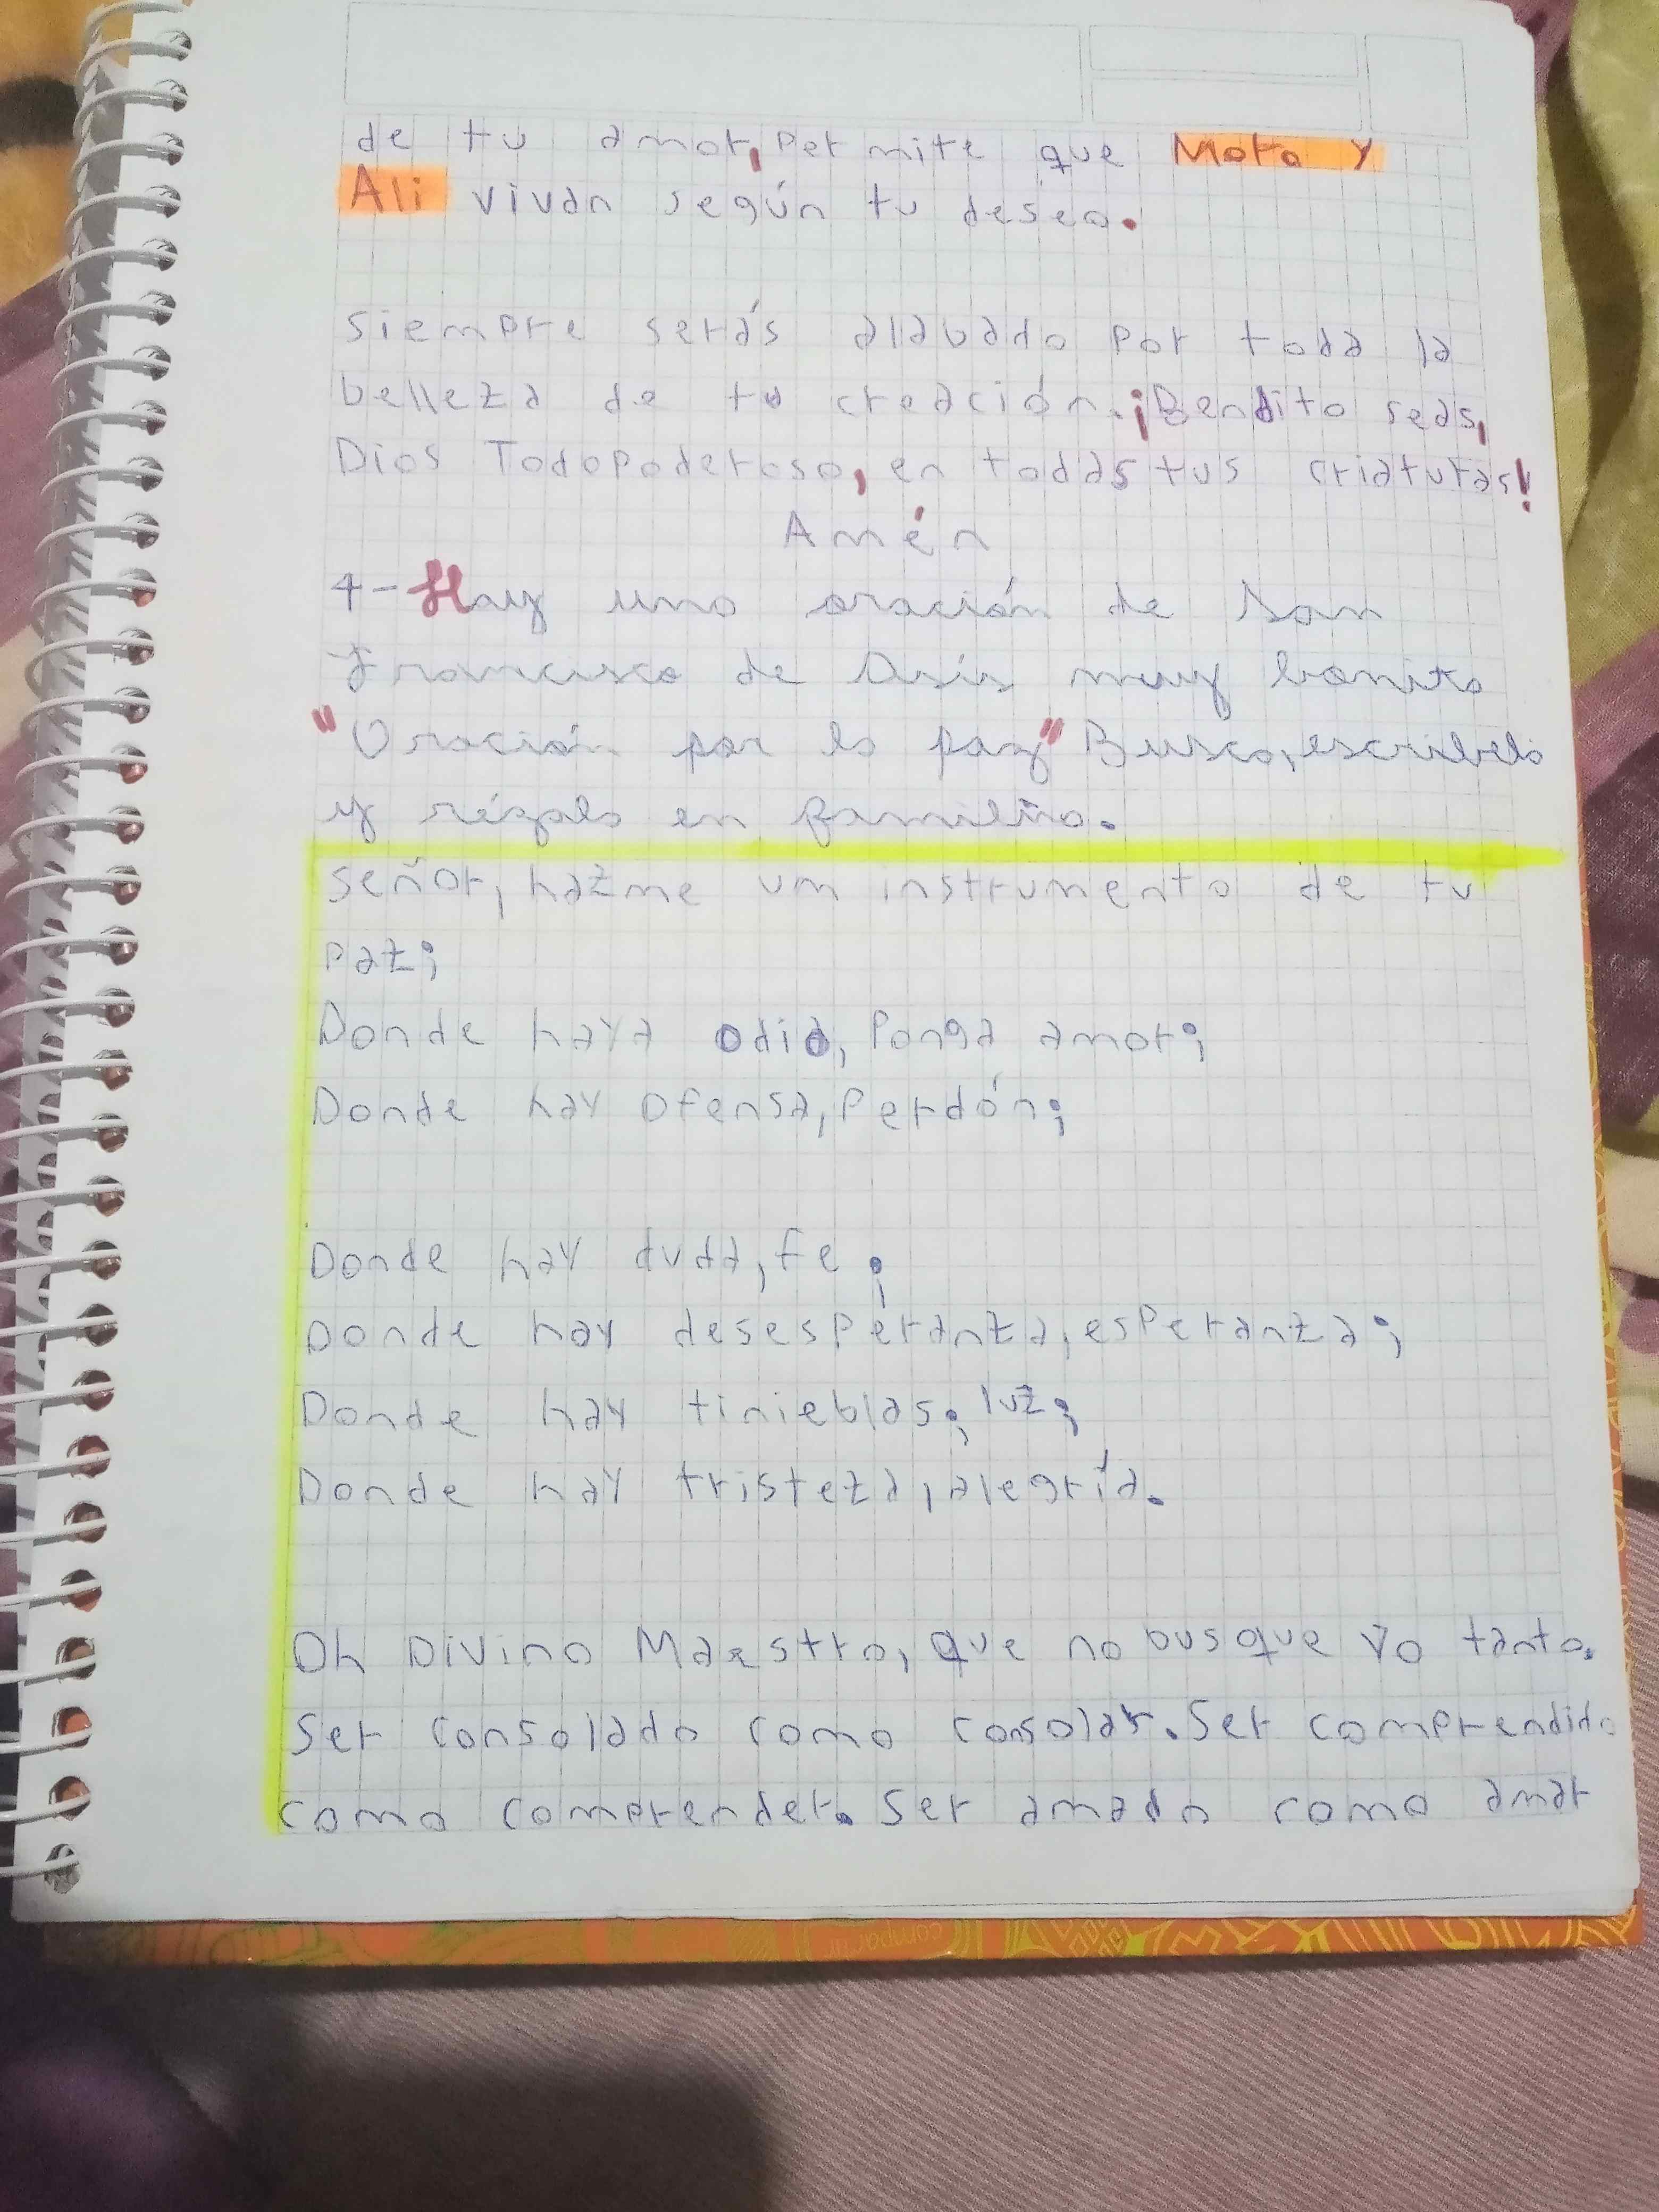 de tu amor, Permite que Moto y
Ali vivan según tu deseo.
Siempre serás alabado por toda la
belleza de tu creación. ¡Bendito seas,
Dios Todopoderoso, en todas tus criaturas!
Amén
4- Hay una oración de San
Francisco de Asís muy bonita
"Oración por la paz" Busca, escribela
y rézala en familia.
Señor, hazme un instrumento de tu
Paz;
Donde haya odio, Ponga amor;
Donde hay Ofensa, Perdón;
Donde hay duda, fe;
Donde hay desesperanza, esperanza;
Donde hay tinieblas; luz;
Donde hay tristeza, alegría.
Oh Divino Maestro, que no busque Yo tanto.
Ser consolado como cosolar. Ser comprendido
como comprender. Ser amado como amar
compartir